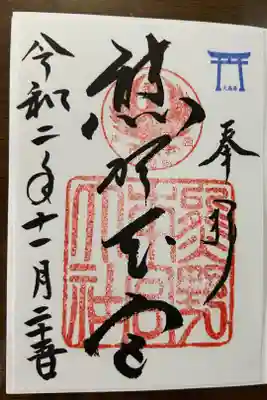 奉拝
熊野本宮
令和二年十一月二十五日
熊野
本宮
大社